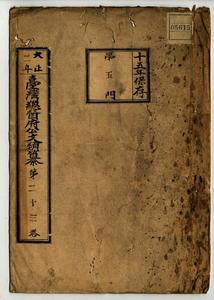 05615
十五年保存
第五門
大正
一年
臺灣總督府公文類纂
第二十三卷